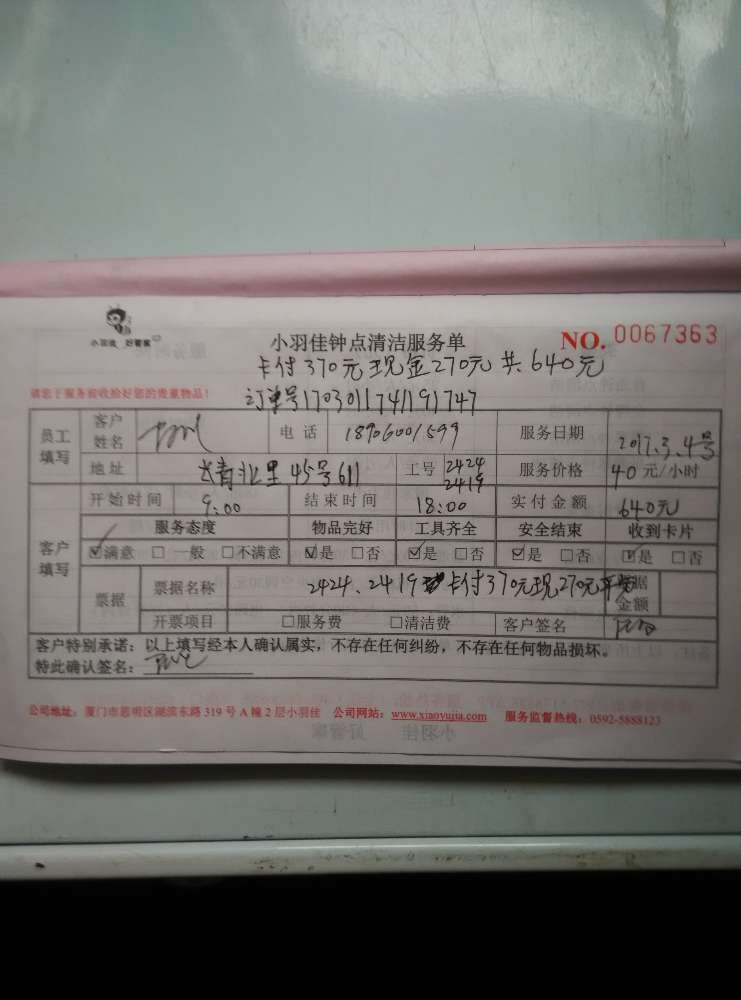 小羽佳 好管家
小羽佳钟点清洁服务单 NO. 0067363
卡付370元现金270元共640元
请您于服务前收拾好您的贵重物品！
订单号1703011741191747
员工填写 客户姓名 电话 18906001599 服务日期 2017.3.4号
地址 长青北里45号611 工号 2424 2419 服务价格 40元/小时
客户填写 开始时间 9:00 结束时间 18:00 实付金额 640元
服务态度 物品完好 工具齐全 安全结束 收到卡片
☑满意 □一般 □不满意 ☑是 □否 ☑是 □否 ☑是 □否 ☑是 □否
票据 票据名称 2424、2419 卡付370元现270元 票据金额
开票项目 □服务费 □清洁费 客户签名
客户特别承诺：以上填写经本人确认属实，不存在任何纠纷，不存在任何物品损坏。
特此确认签名：
公司地址：厦门市思明区湖滨东路319号A幢2层小羽佳 公司网站：www.xiaoyujia.com 服务监督热线：0592-5888123